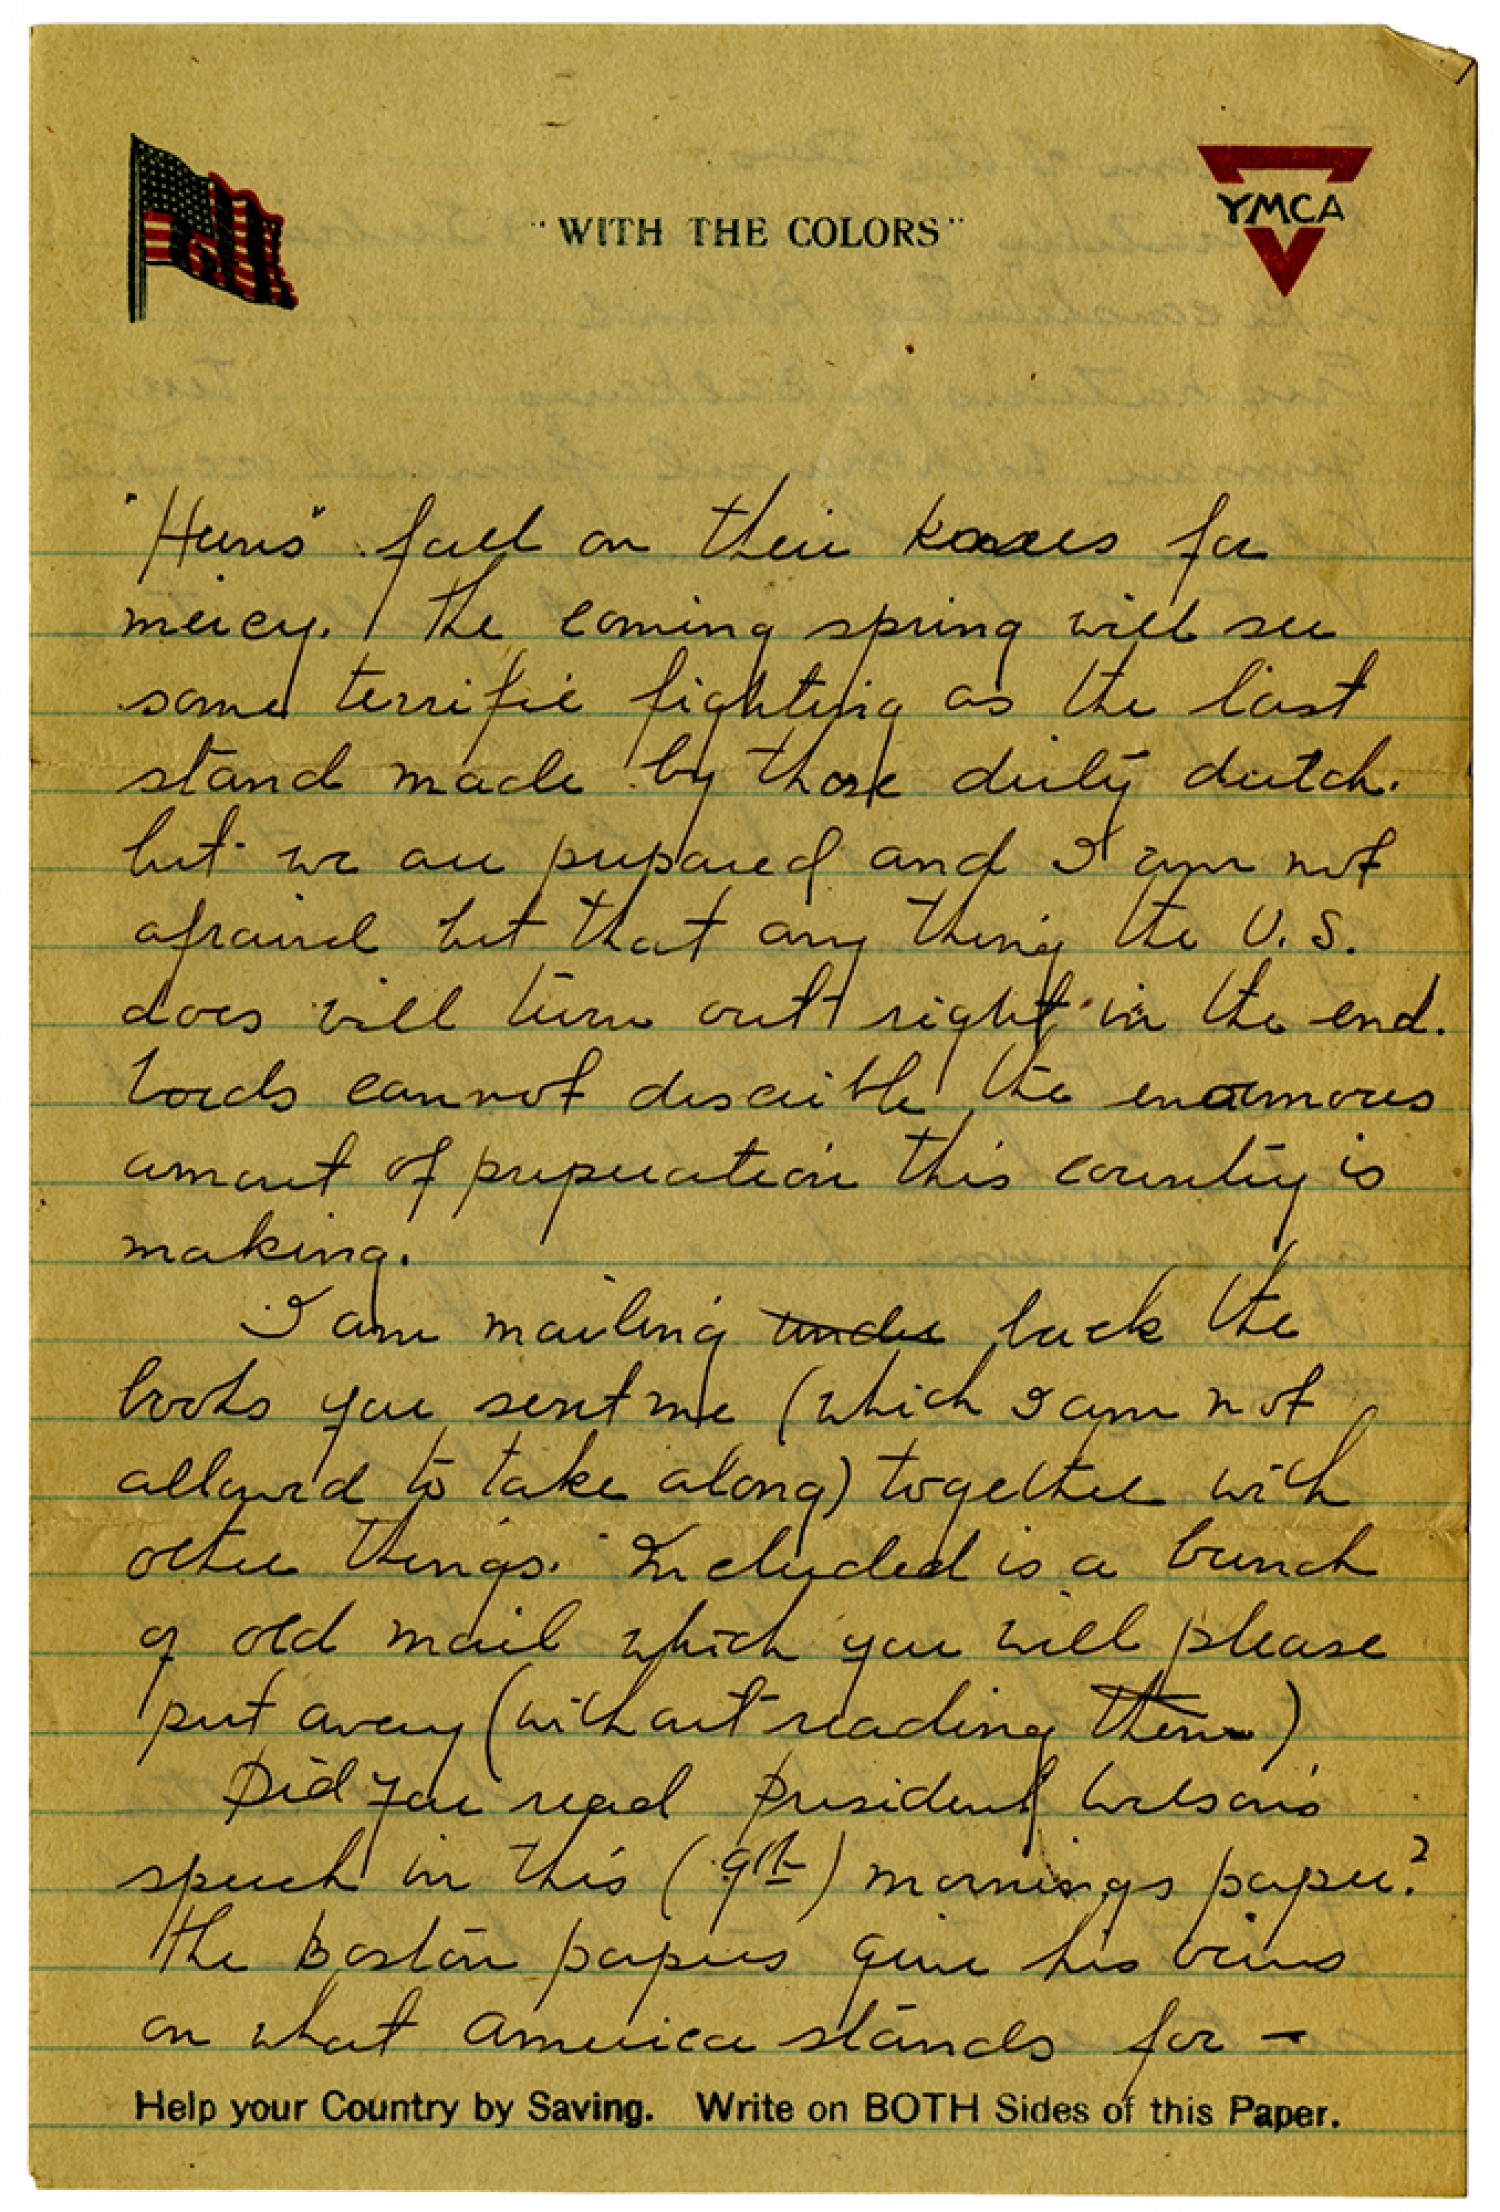 "WITH THE COLORS"
YMCA
"Huns" fall on their knees for
mercy. The coming spring will see
some terrific fighting as the last
stand made by those dirty dutch.
but we are prepared and I am not
afraid but that any thing the U.S.
does will turn out right in the end.
Words cannot describe the enormous
amount of preperation this country is
making.
I am mailing under back the
books you sent me (which I am not
allowed to take along) together with
other things. Included is a bunch
of old mail which you will please
put away (without reading them)
Did you read President Wilson's
speech in this (9th) mornings paper?
The Boston papers give his views
on what America stands for —
Help your Country by Saving. Write on BOTH Sides of this Paper.